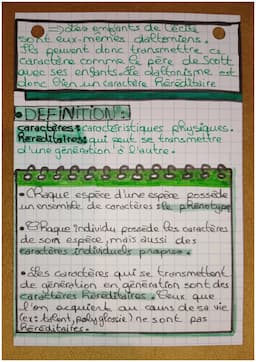 ⇒ Les enfants de Cécile
sont eux-mêmes daltoniens.
Ils peuvent donc transmettre ce
caractère comme le père de Scott
avec ses enfants. Le daltonisme est
donc bien un caractère héréditaire
• DEFINITION:
caractères: caractéristiques physiques.
héréditaires: qui peut se transmettre
d'une génération à l'autre.
• Chaque espèce d'une espèce possède
un ensemble de caractères: le phénotype
• Chaque individu possède les caractères
de son espèce, mais aussi des
caractères individuels propres.
• Les caractères qui se transmettent
de génération en génération sont des
caractères héréditaires. Ceux que
l'on acquiert au cours de sa vie
(ex: talent, polyglossie) ne sont pas
héréditaires.